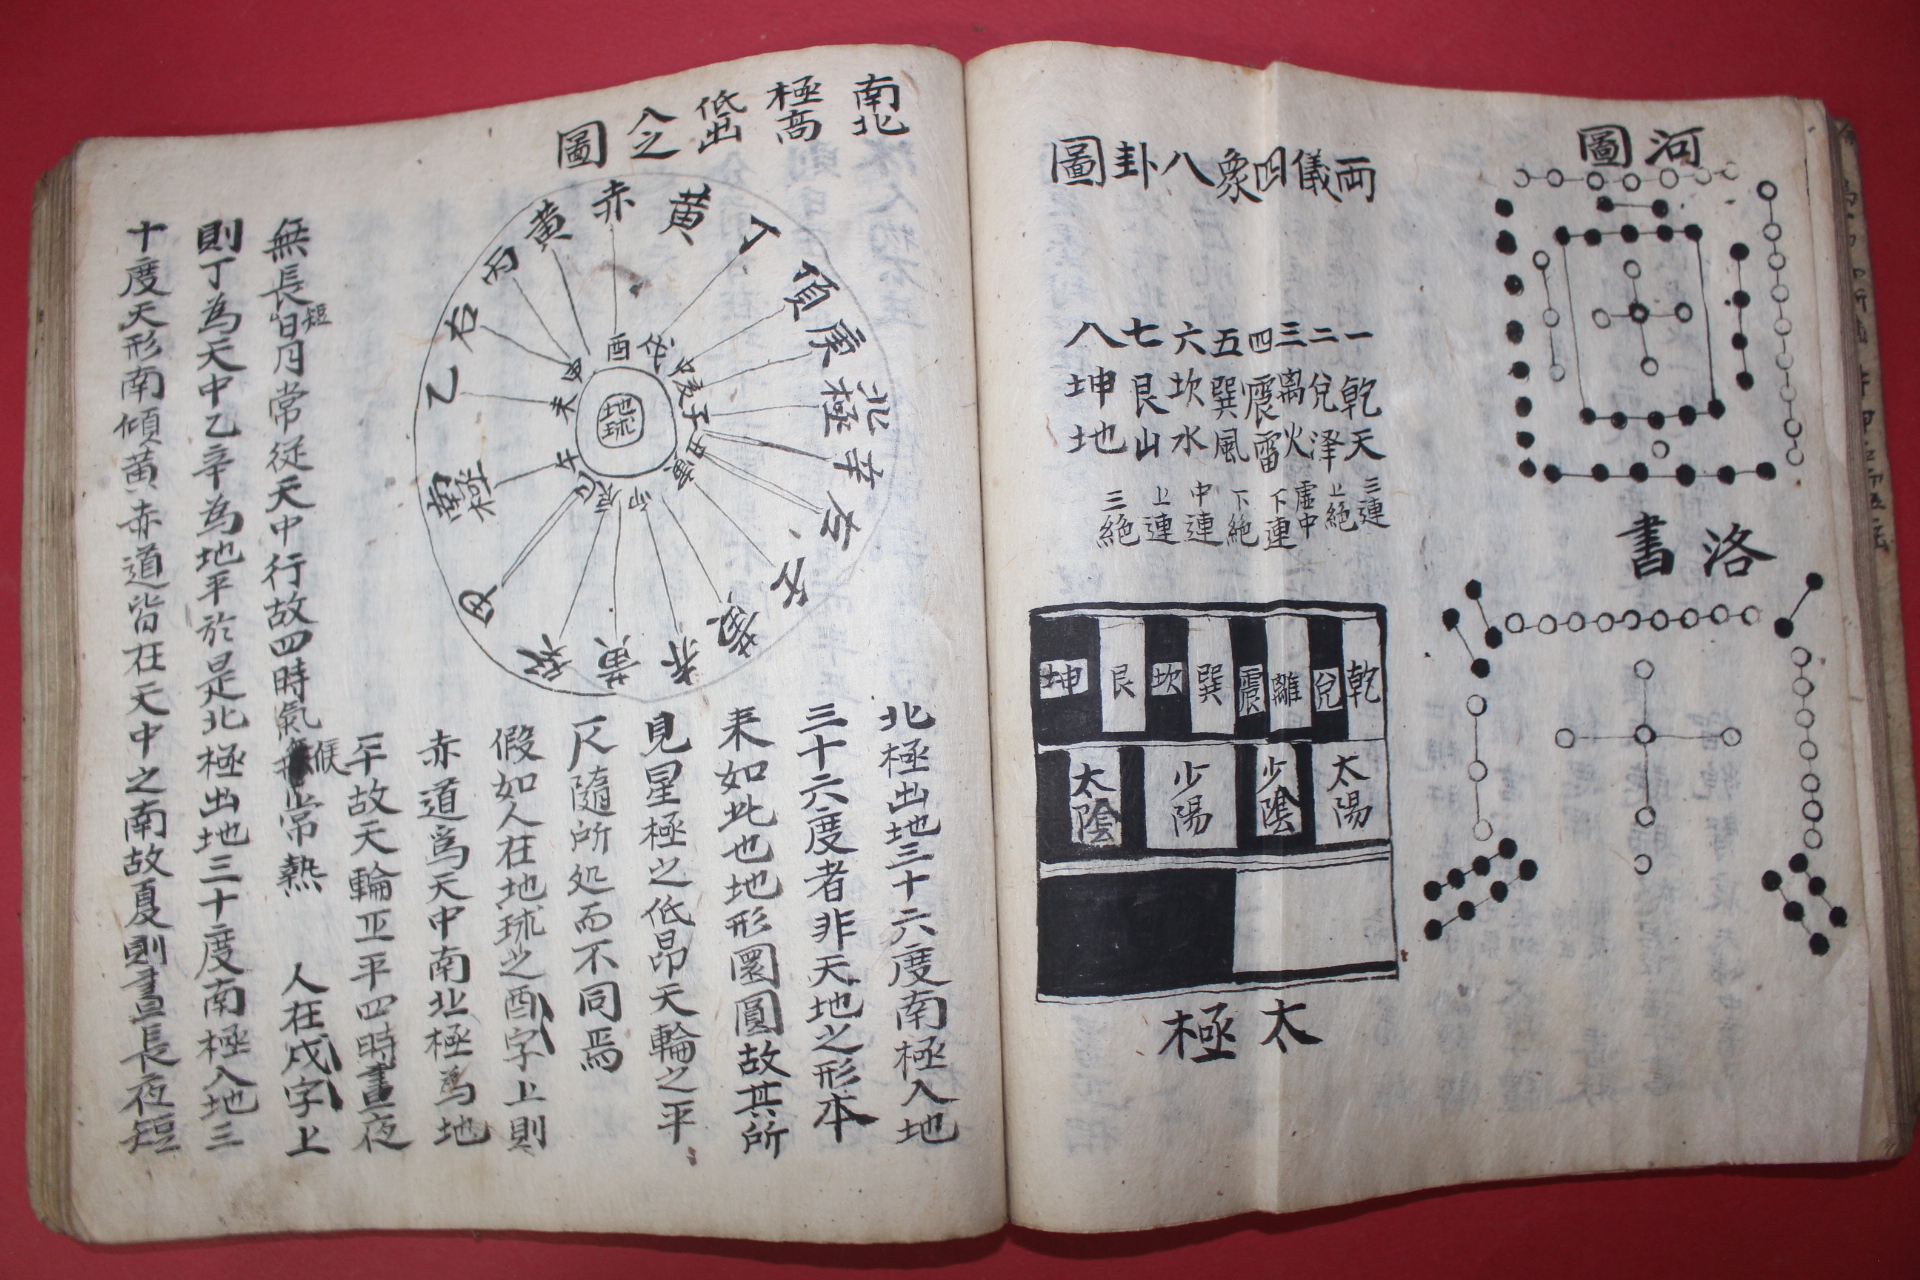 河圖
洛書
兩儀四象八卦圖
一乾天三連
二兌澤上絕
三离火虛中
四震雷下連
五巽風下絕
六坎水中連
七艮山上連
八坤地三絕
乾兌離震巽坎艮坤
太陽
少陰
少陽
太陰
太極
南北
極高
低出
入之
圖
赤
黃
丁
傾
庚
北極
辛
左
壬
黃
赤
黃
癸
甲
南極
乙
右
丙
黃
酉
戌
亥
子
丑
寅
卯
辰
巳
午
未
申
地球
北極出地三十六度南極入地
三十六度者非天地之形本
來如此也地形圜圓故其所
見星極之低昂天輪之平
仄隨所処而不同焉
假如人在地球之酉字上則
赤道爲天中南北極為地
平故天輪正平四時晝夜
無長短日月常從天中行故四時氣候常熱 人在戌字上
則丁為天中乙辛為地平於是北極出地三十度南極入地三
十度天形南傾黃赤道皆在天中之南故夏則晝長夜短